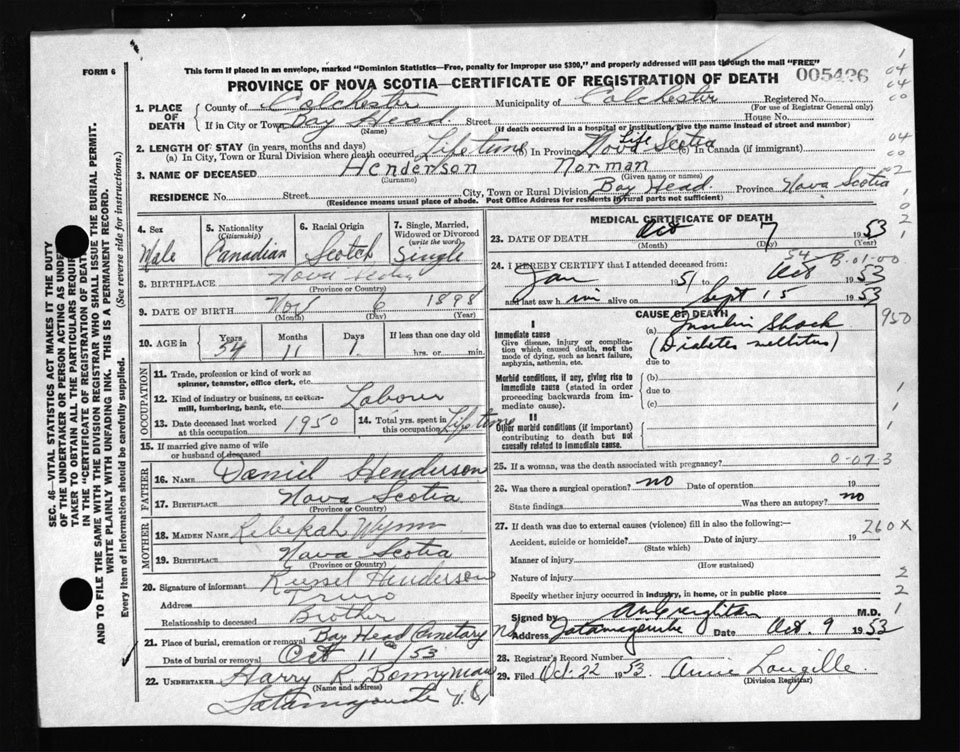 FORM 6
This form if placed in an envelope, marked "Dominion Statistics—Free, penalty for improper use $300," and properly addressed will pass through the mail "FREE"
PROVINCE OF NOVA SCOTIA—CERTIFICATE OF REGISTRATION OF DEATH 005426
1. PLACE OF DEATH
County of Colchester Municipality of Colchester Registered No.
(For use of Registrar General only)
If in City or Town Bay Head Street House No.
(Name) (If death occurred in a hospital or institution, give the name instead of street and number)
2. LENGTH OF STAY (in years, months and days)
(a) In City, Town or Rural Division where death occurred Lifetime (b) In Province Life Nova Scotia (c) In Canada (if immigrant)
3. NAME OF DECEASED Henderson Norman
(Surname) (Given name or names)
RESIDENCE No. Street City, Town or Rural Division Bay Head. Province Nova Scotia
(Residence means usual place of abode. Post Office Address for residents in rural parts not sufficient)
4. Sex
Male
5. Nationality (Citizenship)
Canadian
6. Racial Origin
Scotch
7. Single, Married, Widowed or Divorced (write the word)
Single
8. BIRTHPLACE Nova Scotia
(Province or Country)
9. DATE OF BIRTH Nov 6 1898
(Month) (Day) (Year)
10. AGE in Years 54 Months 11 Days 1 If less than one day old
hrs. or min.
OCCUPATION
11. Trade, profession or kind of work as spinner, teamster, office clerk, etc.
12. Kind of industry or business, as cotton-mill, lumbering, bank, etc. Labourer
13. Date deceased last worked at this occupation 1950
14. Total yrs. spent in this occupation Lifetime
15. If married give name of wife or husband of deceased
FATHER
16. NAME Daniel Henderson
17. BIRTHPLACE Nova Scotia.
(Province or Country)
MOTHER
18. MAIDEN NAME Rebekah Wynn
19. BIRTHPLACE Nova Scotia
(Province or Country)
20. Signature of informant Russel Henderson
Address Truro
Relationship to deceased Brother
21. Place of burial, cremation or removal Bay Head Cemetary
Date of burial or removal Oct 11 /53
22. UNDERTAKER Harry R. Bonnyman
(Name and address)
Tatamagouche N.S.
MEDICAL CERTIFICATE OF DEATH
23. DATE OF DEATH Oct 7 1953
(Month) (Day) (Year)
24. I HEREBY CERTIFY that I attended deceased from:
Jan 1951 to Oct 1953
and last saw him alive on Sept 15 1953
CAUSE OF DEATH
I
Immediate cause
Give disease, injury or complication which caused death, not the mode of dying, such as heart failure, asphyxia, asthenia, etc.
(a) Insulin Shock
(Diabetes mellitus)
due to
Morbid conditions, if any, giving rise to immediate cause (stated in order proceeding backwards from immediate cause).
(b)
due to
(c)
II
Other morbid conditions (if important) contributing to death but not causally related to immediate cause.
25. If a woman, was the death associated with pregnancy?
26. Was there a surgical operation? no Date of operation 19
State findings Was there an autopsy? no
27. If death was due to external causes (violence) fill in also the following:—
Accident, suicide or homicide? Date of injury 19
(State which)
Manner of injury
(How sustained)
Nature of injury
Specify whether injury occurred in industry, in home, or in public place
Signed by M.D.
Address Tatamagouche Date Oct. 9 1953
28. Registrar's Record Number
29. Filed Oct. 22 1953 Annie Langille
(Division Registrar)
04
04
00
04
00
2
0
2
54
B-01-00
950
1
1
1
0-07-3
260X
2
2
1
SEC. 46—VITAL STATISTICS ACT MAKES IT THE DUTY
OF THE UNDERTAKER OR PERSON ACTING AS UNDER-
TAKER TO OBTAIN ALL THE PARTICULARS REQUIRED
IN THE "CERTIFICATE OF REGISTRATION OF DEATH"
AND TO FILE THE SAME WITH THE DIVISION REGISTRAR WHO SHALL ISSUE THE BURIAL PERMIT.
WRITE PLAINLY WITH UNFADING INK. THIS IS A PERMANENT RECORD.
Every item of information should be carefully supplied. (See reverse side for instructions.)